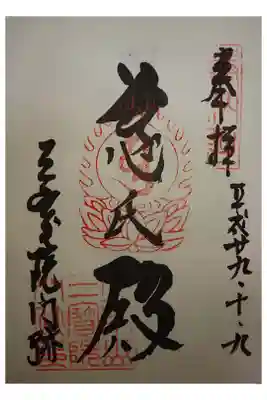 奉拝
平成廿九・十・九
慈氏殿
三宝院門跡